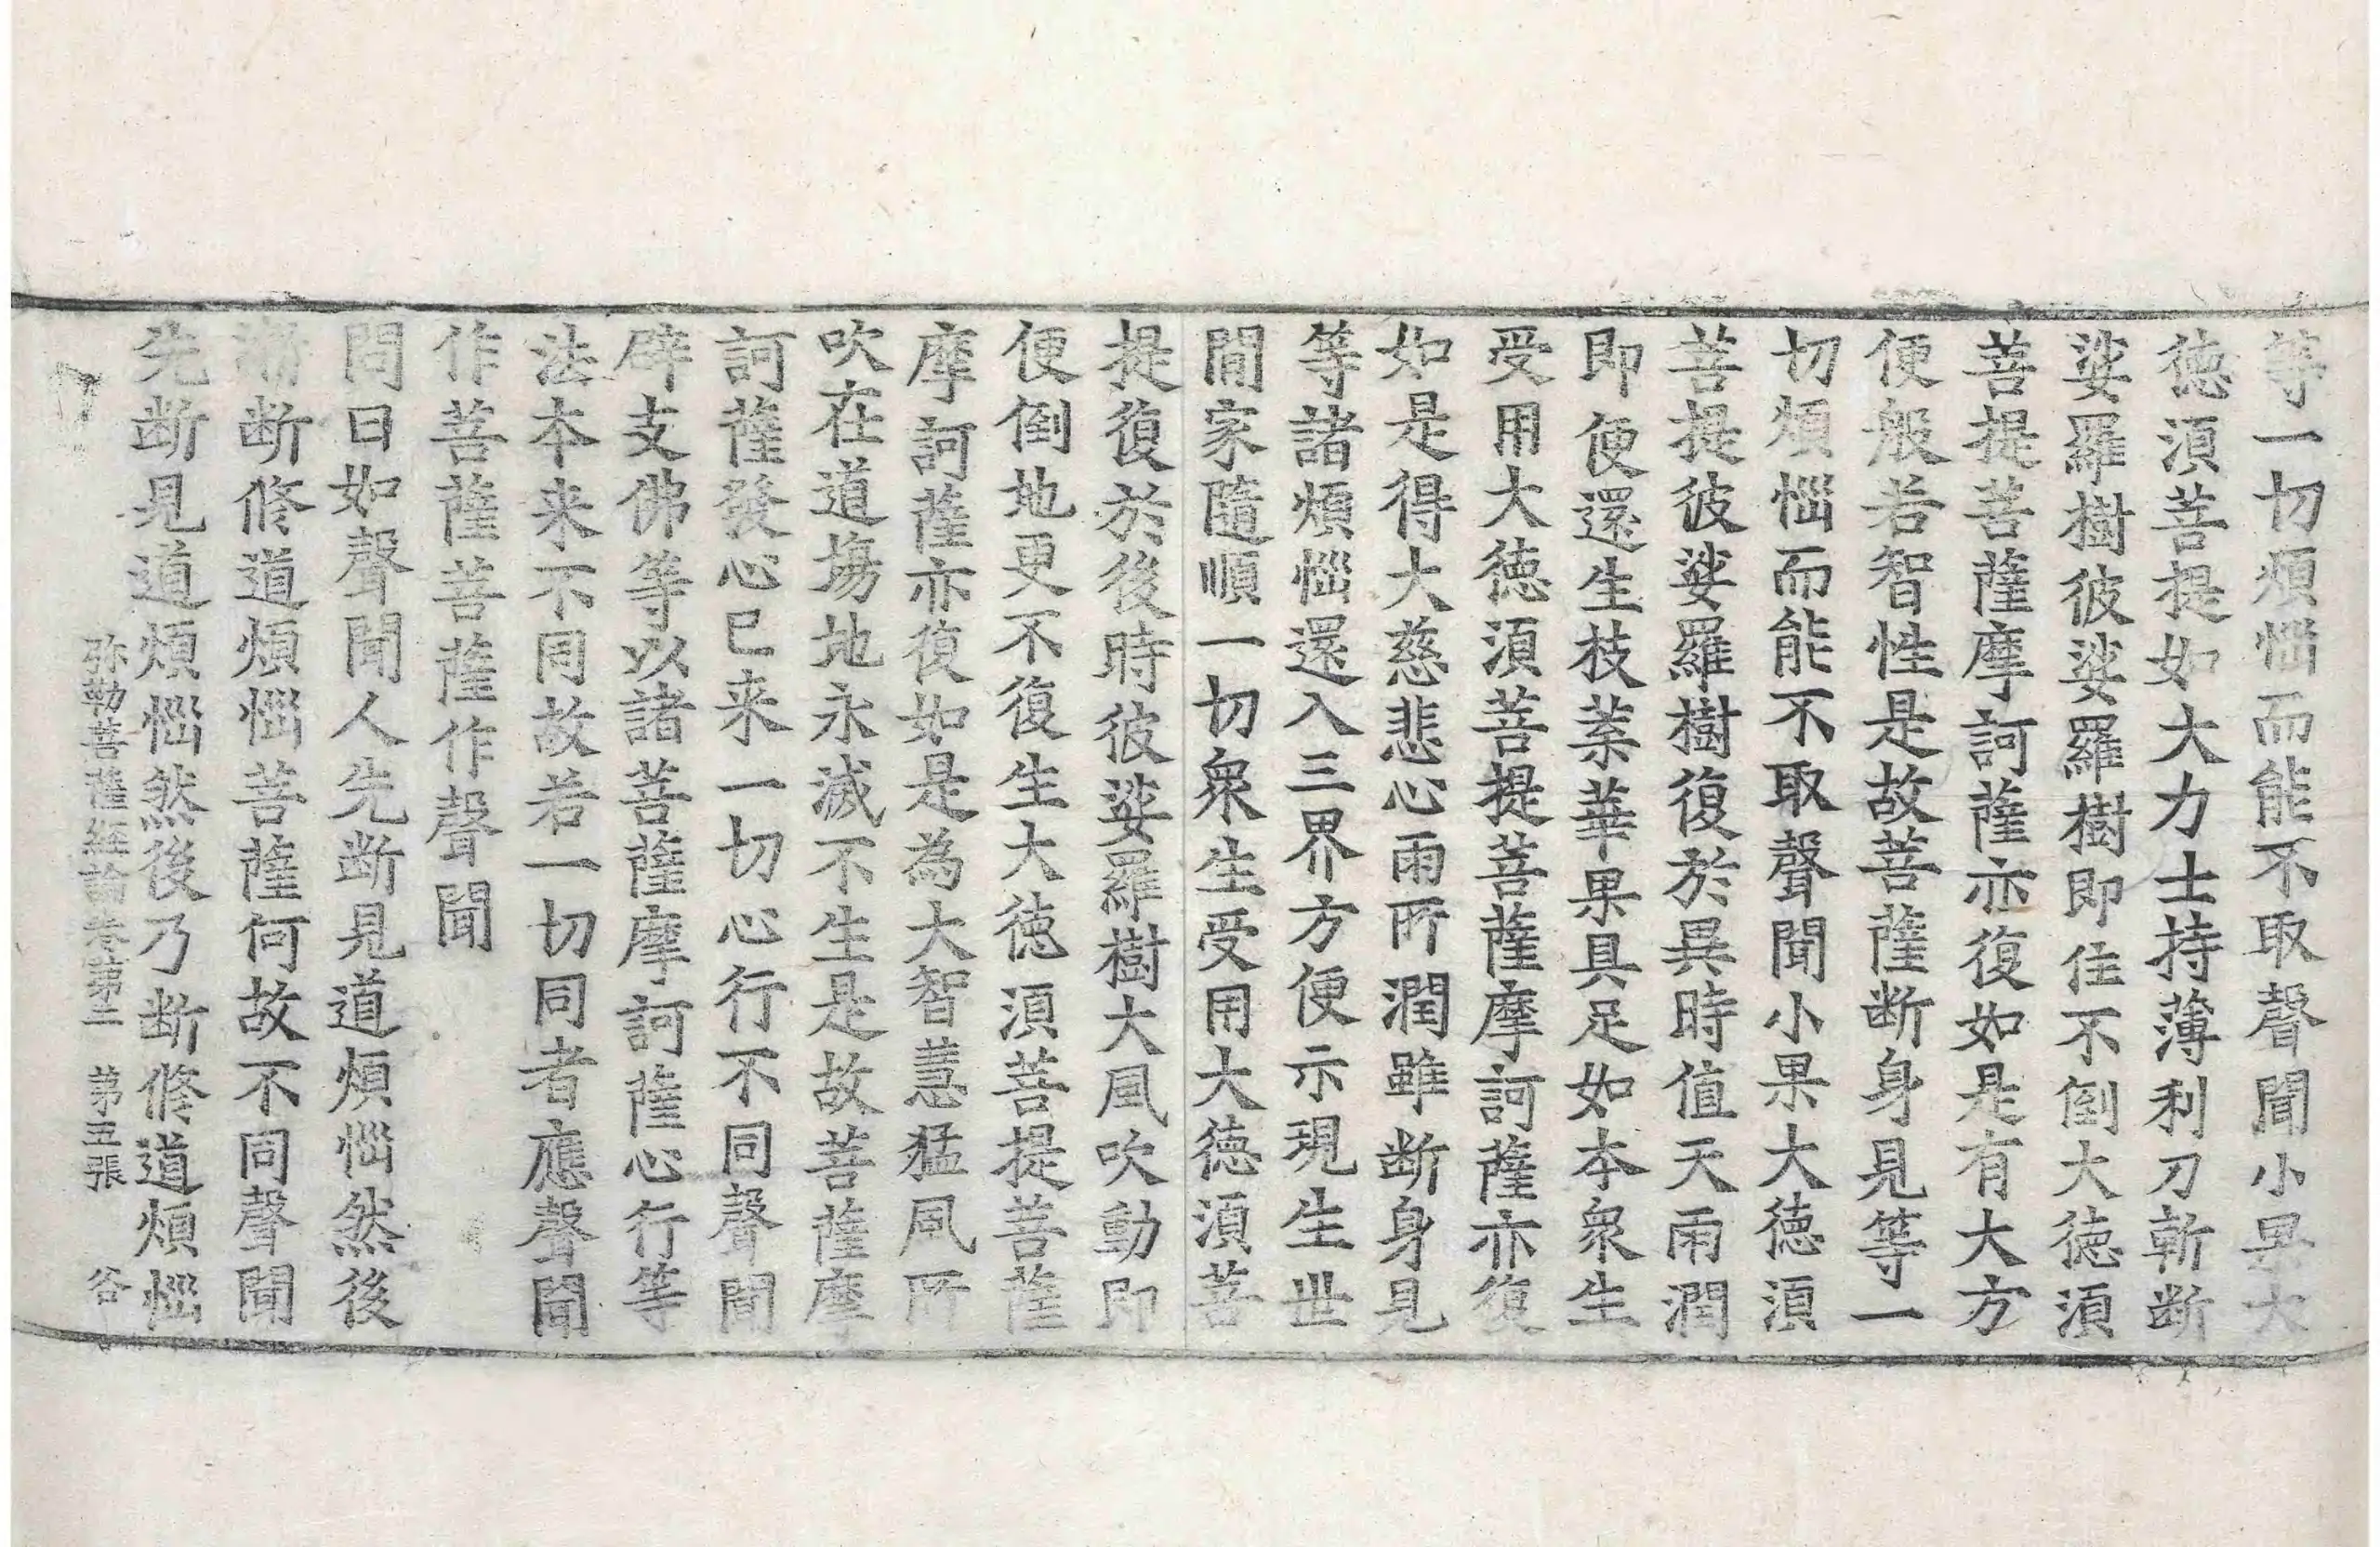 等一切煩惱而能不取聲聞小果大
徳湏菩提如大力士持薄利刀斬断
娑羅樹彼娑羅樹即住不倒大徳湏
菩提菩薩摩訶薩亦復如是有大方
便般若智性是故菩薩断身見等一
切煩惱而能不取聲聞小果大徳湏
菩提彼娑羅樹復於異時值天雨潤
即便還生枝葉華果具足如本衆生
受用大徳湏菩提菩薩摩訶薩亦復
如是得大慈悲心雨所潤雖断身見
等諸煩惱還入三界方便示現生世
間家隨順一切衆生受用大徳湏菩
提復於後時彼娑羅樹大風吹動即
便倒地更不復生大徳湏菩提菩薩
摩訶薩亦復如是為大智慧猛風所
吹在道場地永滅不生是故菩薩摩
訶薩發心已来一切心行不同聲聞
辟支佛等以諸菩薩摩訶薩心行等
法本来不同故若一切同者應聲聞
作菩薩菩薩作聲聞
問曰如聲聞人先断見道煩惱然後
断修道煩惱菩薩何故不同聲聞
先断見道煩惱然後乃断修道煩惱
弥勒菩薩經論卷第二 第五張 谷